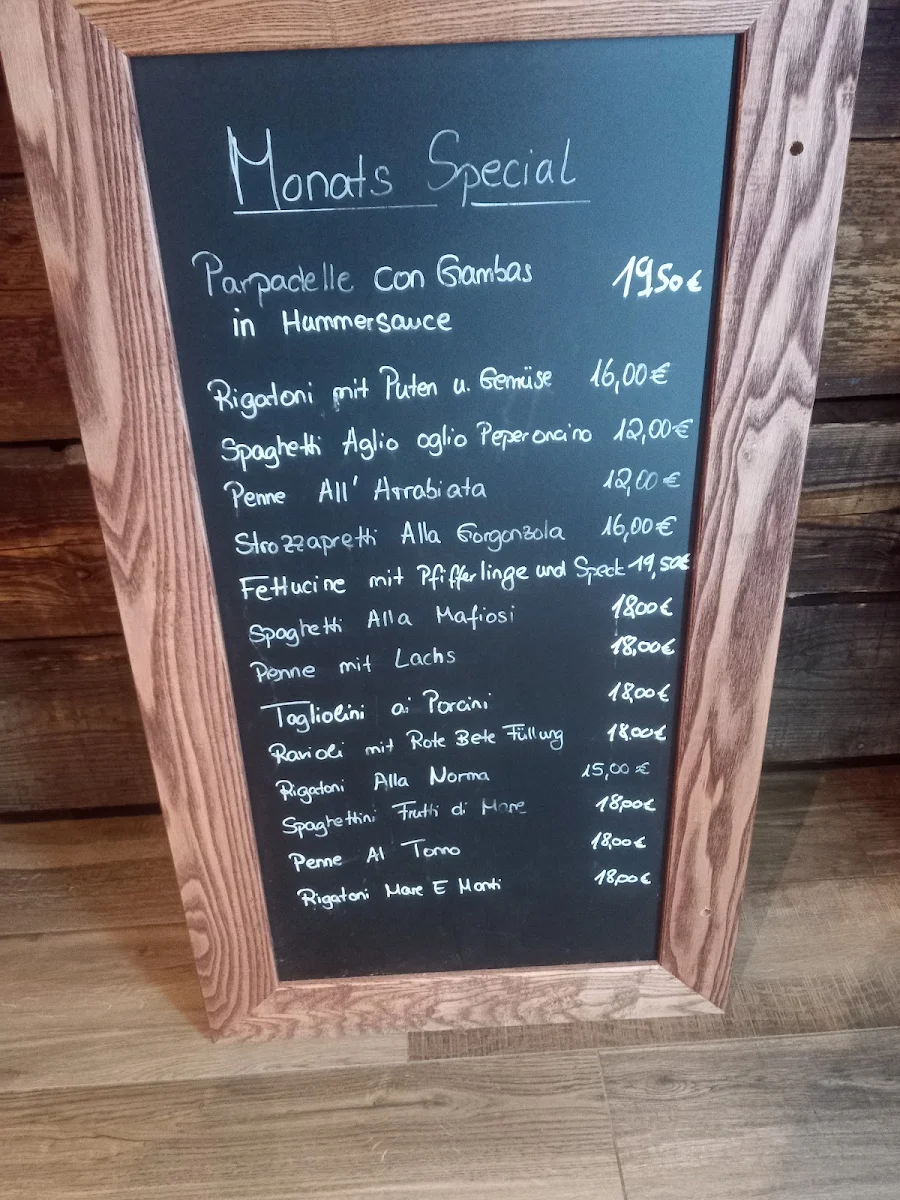 Monats Special
Parpadelle con Gambas 19,50€
in Hummersauce
Rigatoni mit Puten u. Gemüse 16,00€
Spaghetti Aglio oglio Peperoncino 12,00€
Penne All' Arrabiata 12,00€
Strozzapretti Alla Gorgonzola 16,00€
Fettucine mit Pfifferlinge und Speck 19,50€
Spaghetti Alla Mafiosi 18,00€
Penne mit Lachs 18,00€
Tagliolini ai Porcini 18,00€
Ravioli mit Rote Bete Füllung 18,00€
Rigatoni Alla Norma 15,00€
Spaghettini Frutti di Mare 18,00€
Penne Al Tonno 18,00€
Rigatoni Mare E Monti 18,00€